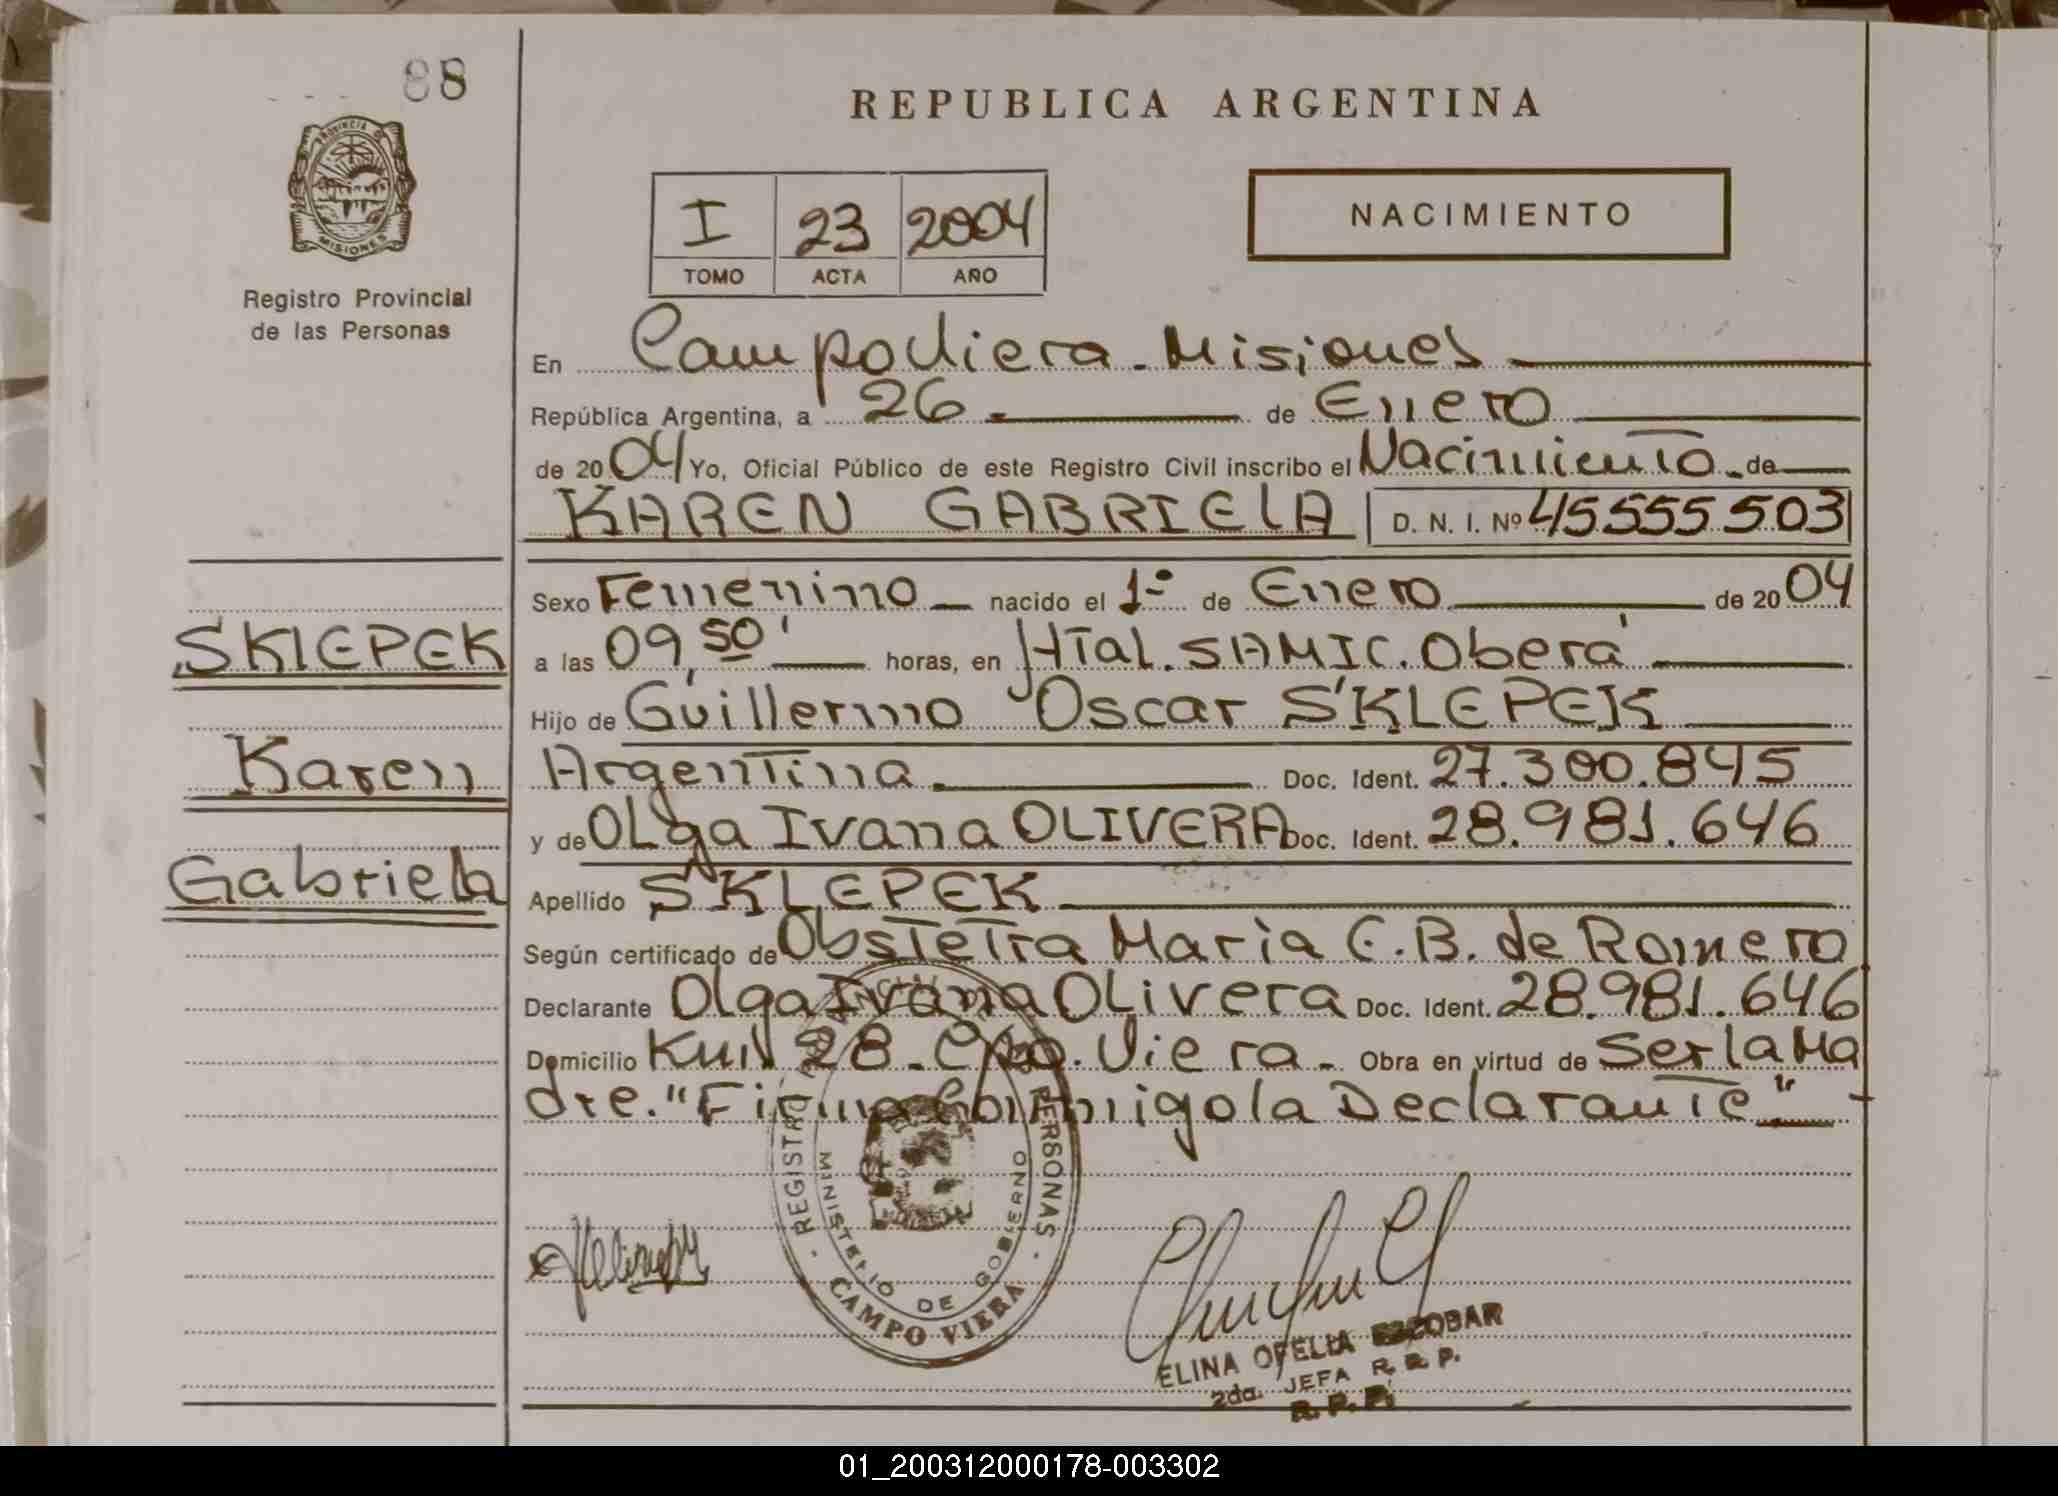 88
PROVINCIA DE
MISIONES
Registro Provincial
de las Personas
REPUBLICA ARGENTINA
I 23 2004
TOMO ACTA AÑO
NACIMIENTO
En Campo Viera - Misiones
República Argentina, a 26 - de Enero
de 2004 Yo, Oficial Público de este Registro Civil inscribo el Nacimiento - de
KAREN GABRIELA D. N. I. Nº 45555503
Sexo Femenino nacido el 1º de Enero de 2004
a las 09,50' horas, en Htal. SAMIC. Oberá
Hijo de Guillermo Oscar SKLEPEK
Argentina Doc. Ident. 27.300.845
y de OLga Ivana OLIVERA Doc. Ident. 28.981.646
Apellido SKLEPEK
Según certificado de Obstetra Maria C.B. de Romero
Declarante Olga Ivana OLivera Doc. Ident. 28.981.646
Domicilio Km 28 - Cpo. Viera - Obra en virtud de Ser la Ma
dre. "Firma Conmigo la Declarante" -
SKLEPEK
Karen
Gabriela
REGISTRO PROVINCIAL PERSONAS
MINISTERIO DE GOBIERNO
CAMPO VIERA
ELINA OFELIA ESCOBAR
2da. JEFA R. R. P.
R. P. P.
01_200312000178-003302